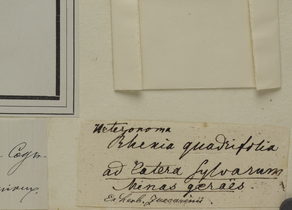 Heteronoma
Rhexia quadrifolia
ad latera sylvarum
Minas geraes
Ex Herb.
Cogn.